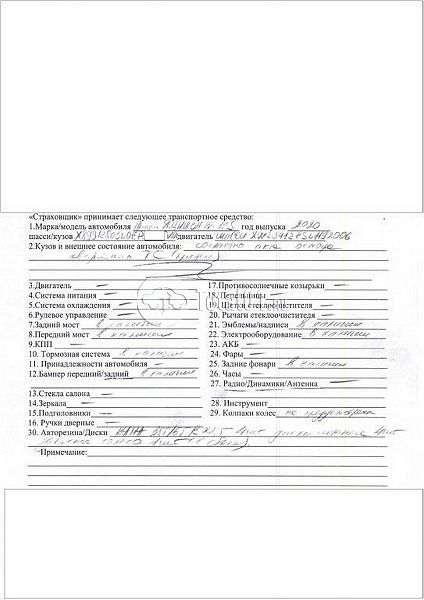 «Страховщик» принимает следующее транспортное средство:
1.Марка/модель автомобиля год выпуска 2020
шасси/кузов двигатель
2.Кузов и внешнее состояние автомобиля: согласно акта осмотра
ТС
3.Двигатель — 17.Противосолнечные козырьки —
4.Система питания — 18. Пепельницы —
5.Система охлаждения — 19. Щетки стеклоочистителя —
6.Рулевое управление — 20. Рычаги стеклоочистителя —
7.Задний мост в наличии 21. Эмблемы/надписи в наличии
8.Передний мост в наличии 22. Электрооборудование в наличии
9.КПП — 23. АКБ —
10. Тормозная система в наличии 24. Фары —
11. Принадлежности автомобиля — 25. Задние фонари в наличии
12.Бампер передний/задний в наличии 26. Часы —
27. Радио/Динамики/Антенна —
13.Стекла салона —
14.Зеркала — 28. Инструмент —
15.Подголовники — 29. Колпаки колес не предусмотрены
16. Ручки дверные —
30. Авторезина/Диски
Примечание: